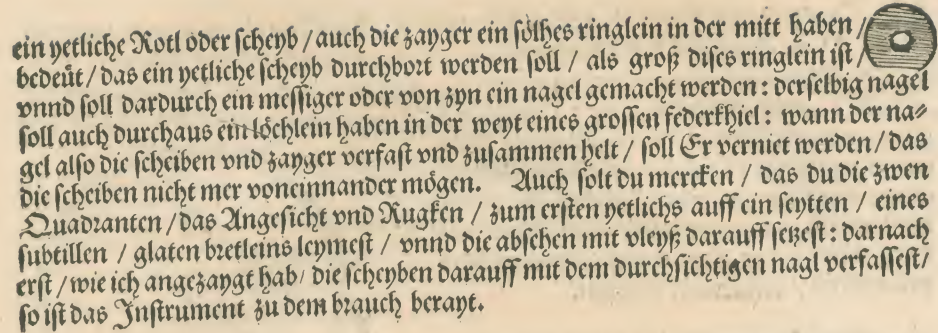 ein yetliche Rotl oder scheyb / auch die zayger ein sölhes ringlein in der mitt haben /
bedeüt / das ein yetliche scheyb durchbort werden soll / als groß dises ringlein ist /
vnnd soll dardurch ein messiger oder von zyn ein nagel gemacht werden: derselbig nagel
soll auch durchaus ein löchlein haben in der weyt eines grossen federkhiel: wann der na⸗
gel also die scheiben vnd zayger verfast vnd zusammen helt / soll Er verniet werden / das
die scheiben nicht mer voneinnander mögen. Auch solt du mercken / das du die zwen
Quadranten / das Angesicht vnd Rugken / zum ersten yetlichs auff ein seytten / eines
subtillen / glaten bretleins leymest / vnnd die absehen mit vleyß darauff setzest: darnach
erst / wie ich angezaygt hab / die scheyben darauff mit dem durchsichtigen nagl verfassest /
so ist das Instrument zu dem brauch berayt.